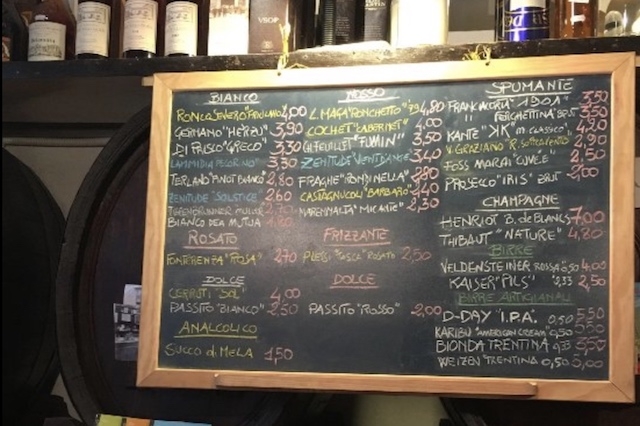 VSOP
BIANCO
RONCO SEVERO FRIULANO 4,00
GERMANO "HERZU" 3,90
DI PRISCO "GRECO" 3,30
PECORINO 3,30
TERLANO PINOT BIANCO 2,80
ZENITUDE "SOLSTICE" 2,60
2,70
BIANCO DEA MUTUA
ROSATO
"ROSA" 2,70
DOLCE
CERRUTI "SOL" 4,00
PASSITO "BIANCO" 2,50
ANALCOLICO
SUCCO di MELA 1,50
ROSSO
L. MACA "RONCHETTO" '79 4,80
COCHET "CABERNET" 4,00
"FUMIN" 3,50
ZENITUDE 3,40
FRAGHE "RONDINELLA" 2,80
CASTAGNUCOLI "BARBARO" 2,40
MAREMMALTA "MICANTE" 2,30
FRIZZANTE
ROSATO 2,50
DOLCE
PASSITO "ROSSO" 2,00
SPUMANTE
FRANCIACORTA 3,50
" FERGHETTINA BRUT 3,50
KANTE "KK" M. CLASSICO 4,20
V. GRAZIANO "R. SOTTOVENTO 2,90
FOSS MARAI "CUVÉE" 2,50
PROSECCO "IRIS" BRUT 2,00
CHAMPAGNE
HENRIOT B. de BLANCS 7,00
THIBAUT "NATURE" 4,80
BIRRE
VELDENSTEINER ROSSA 0,50 4,00
KAISER "PILS" 0,33 2,50
BIRRE ARTIGIANALI
D-DAY "I.P.A." 0,50 5,50
KARIBU "AMERICAN CREAM" 0,50
BIONDA TRENTINA 0,33 3,50
WEIZEN TRENTINA 0,50 5,00